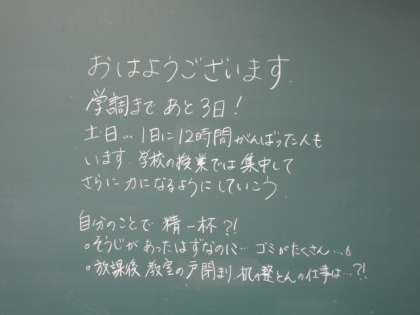 おはようございます
学調まであと3日!
土日…1日に12時間がんばった人も
います。学校の授業では集中して
さらに力になるようにしていこう
自分のことで精一杯?!
○そうじがあったはずなのに…ゴミがたくさん…。
○放課後教室の戸閉まり、机の整とんの仕事は…?!